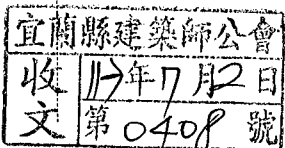 宜蘭縣建築師公會
收文
113年7月12日
第0408號